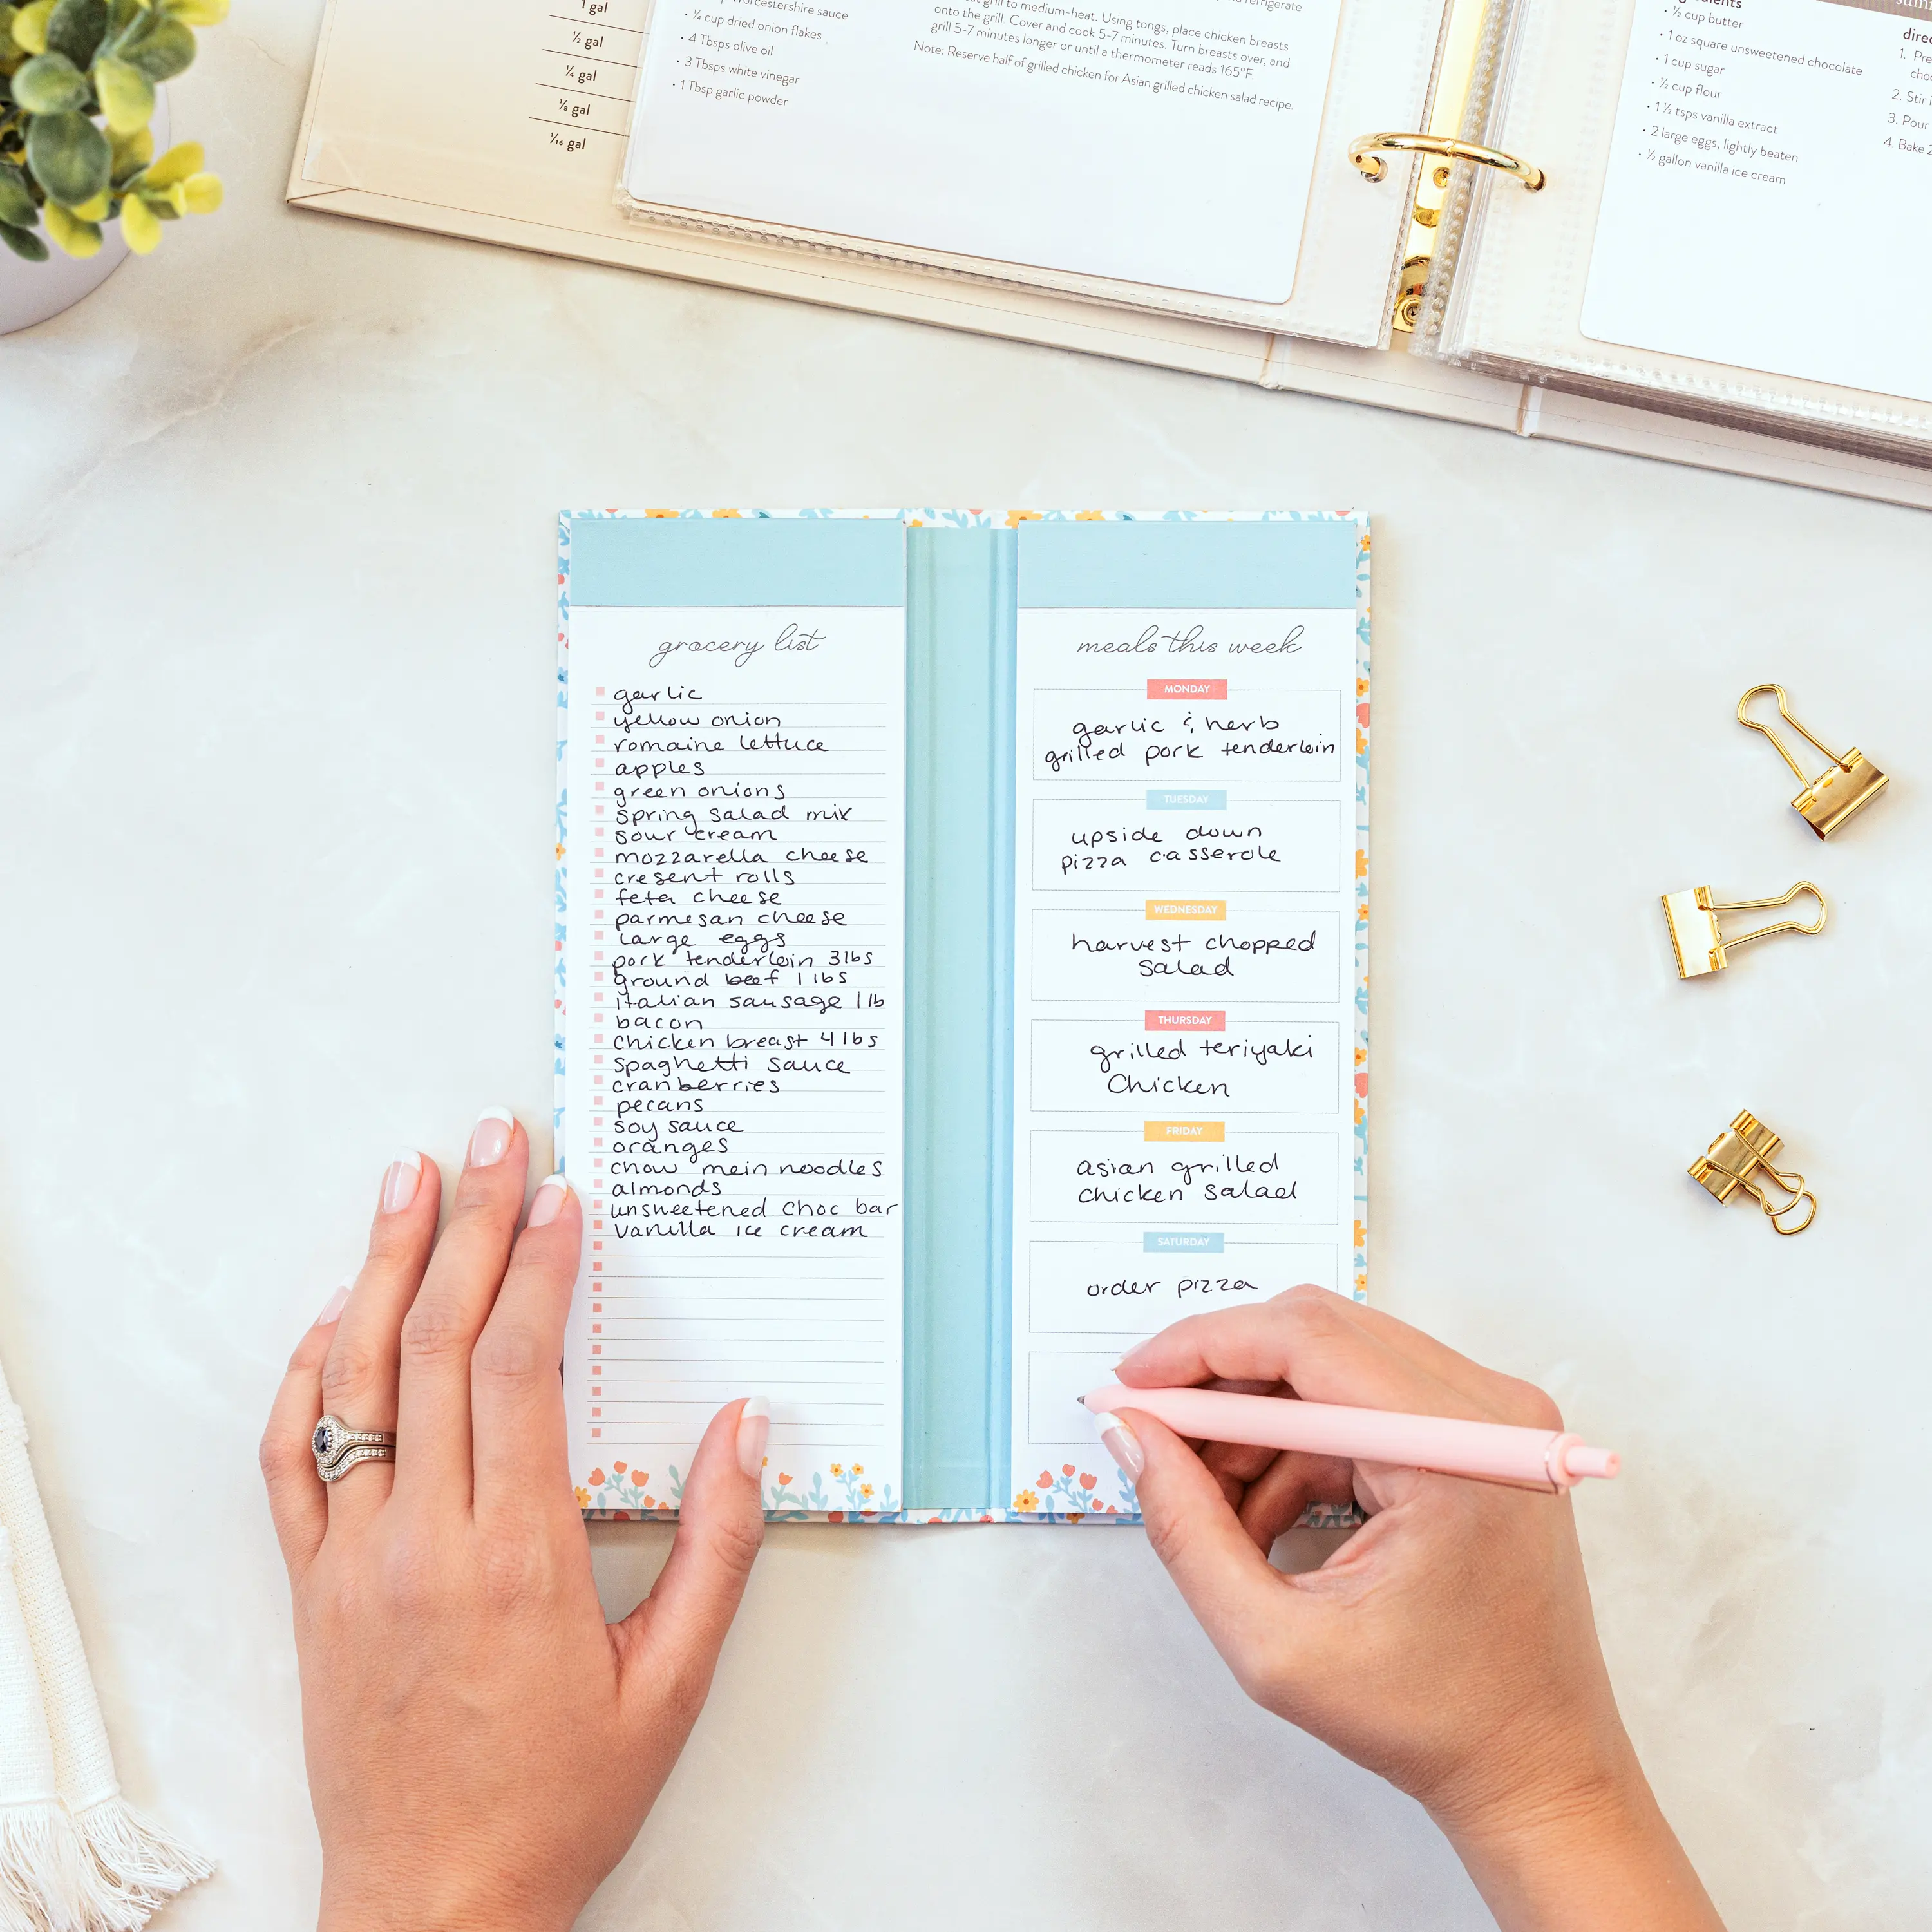 1 gal
½ gal
¼ gal
⅛ gal
¹⁄₁₆ gal
Worcestershire sauce
• ¼ cup dried onion flakes
• 4 Tbsps olive oil
• 3 Tbsps white vinegar
• 1 Tbsp garlic powder
refrigerate
grill to medium-heat. Using tongs, place chicken breasts
onto the grill. Cover and cook 5-7 minutes. Turn breasts over, and
grill 5-7 minutes longer or until a thermometer reads 165°F.
Note: Reserve half of grilled chicken for Asian grilled chicken salad recipe.
• ½ cup butter
• 1 oz square unsweetened chocolate
• 1 cup sugar
• ½ cup flour
• 1 ½ tsps vanilla extract
• 2 large eggs, lightly beaten
• ½ gallon vanilla ice cream
1.
2. Stir
3. Pour
4. Bake
grocery list
garlic
yellow onion
romaine lettuce
apples
green onions
spring salad mix
sour cream
mozzarella cheese
cresent rolls
feta cheese
parmesan cheese
large eggs
pork tenderloin 3lbs
ground beef 1 lbs
italian sausage 1 lb
bacon
chicken breast 4 lbs
spaghetti sauce
cranberries
pecans
soy sauce
oranges
chow mein noodles
almonds
unsweetened choc bar
vanilla ice cream
meals this week
MONDAY
garlic & herb
grilled pork tenderloin
TUESDAY
upside down
pizza casserole
WEDNESDAY
harvest chopped
salad
THURSDAY
grilled teriyaki
Chicken
FRIDAY
asian grilled
chicken salad
SATURDAY
order pizza